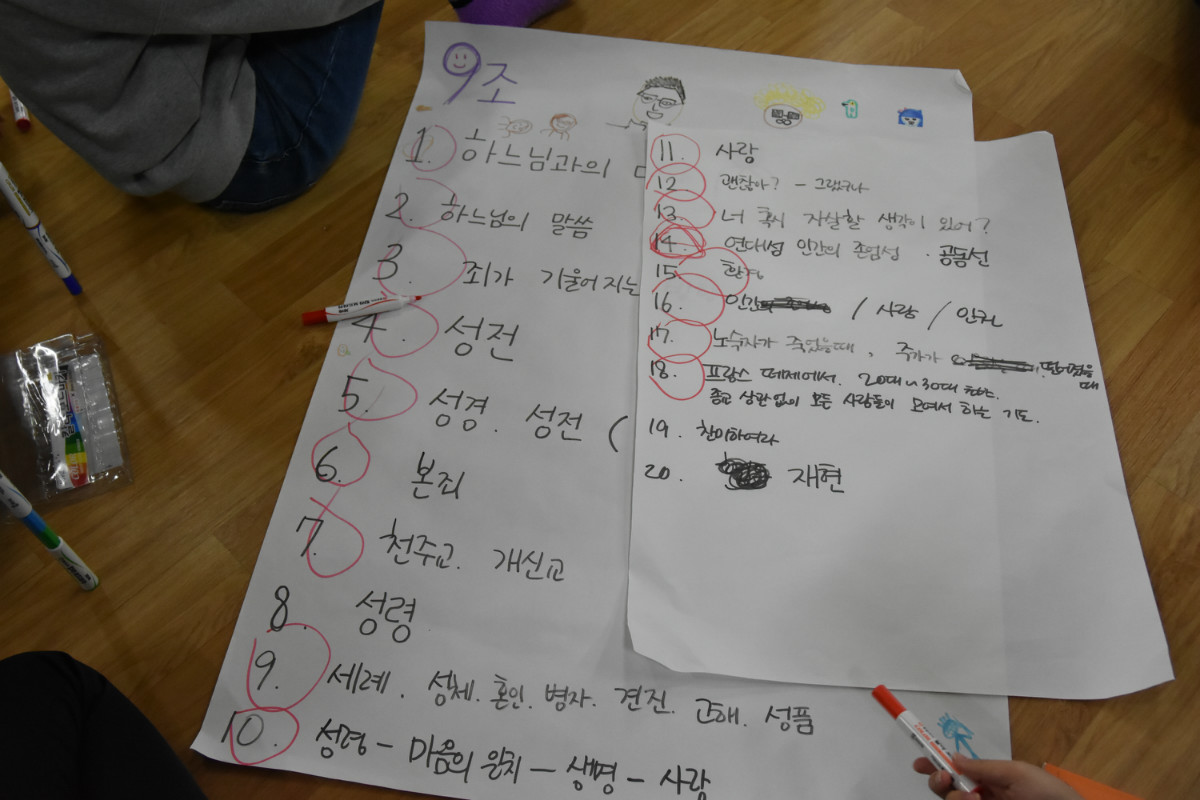 9조
1. 하느님과의
2. 하느님의 말씀
3. 죄가 기울어지는
4. 성전
5. 성경. 성전 (
6. 본죄
7. 천주교. 개신교
8. 성령
9. 세례. 성체. 혼인. 병자. 견진. 고해. 성품
10. 성령 - 마음의 일치 - 생명 - 사랑
11. 사랑
12 괜찮아? - 그랬구나
13. 너 혹시 자살할 생각이 있어?
14. 연대성 인간의 존엄성 · 공동선
15. 환경
16. 인간 / 사랑 / 인권
17. 노숙자가 죽었을때, 주가가 떨어졌을때
18. 프랑스 떼제에서. 20대~30대 청년
종교 상관없이 모든 사람들이 모여서 하는 기도.
19. 찬미하여라
20. 재현